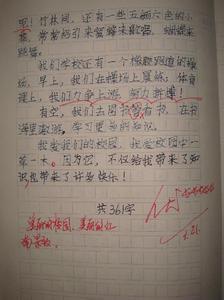 吧！竹林间，还有一些五颜六色的小
花，常常招引来蜜蜂来歌唱，蝴蝶来
跳舞。
我们学校还有一个橡胶跑道的操
场，早上，我们在操场上晨练，体育
课上，我们力争上游，努力拼搏！
有空，我们去图书馆看书，在书
海里遨游，学习更多的知识。
我爱我们的校园，我爱校园中一
草一木。因为它，不仅给我带来了知
识也带来了许多快乐！
共361字
美丽的校园，美丽的
5.21.